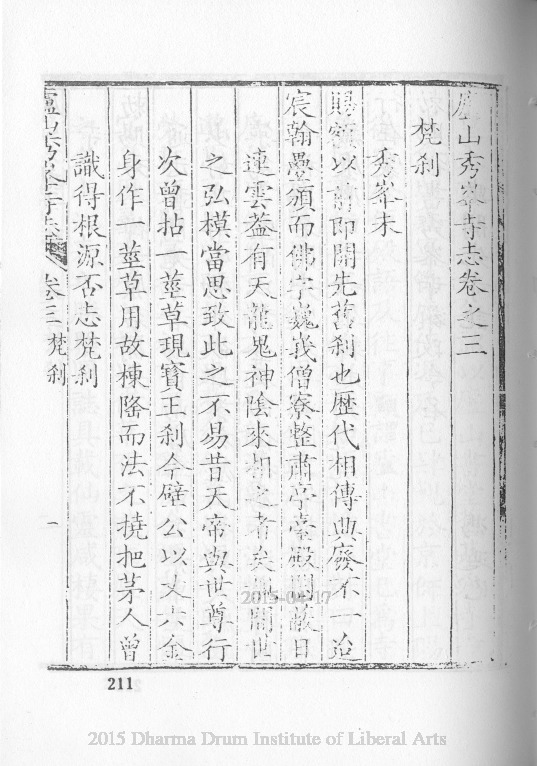 廬山秀峯寺志卷之三
梵刹
秀峯未
賜額以前即開先舊刹也歷代相傳興廢不一迨
宸翰疊頒而佛宇巍峩僧寮整肅亭臺殿閣蔽日
連雲葢有天龍鬼神陰來相之者矣開世
之弘模當思致此之不易昔天帝與世尊行
次曾拈一莖草現寶王刹今壁公以丈六金
身作一莖草用故棟隆而法不撓把茅人曾
識得根源否志梵刹
廬山秀峯寺志 卷三 梵刹 一
211
2015-04-17
2015 Dharma Drum Institute of Liberal Arts